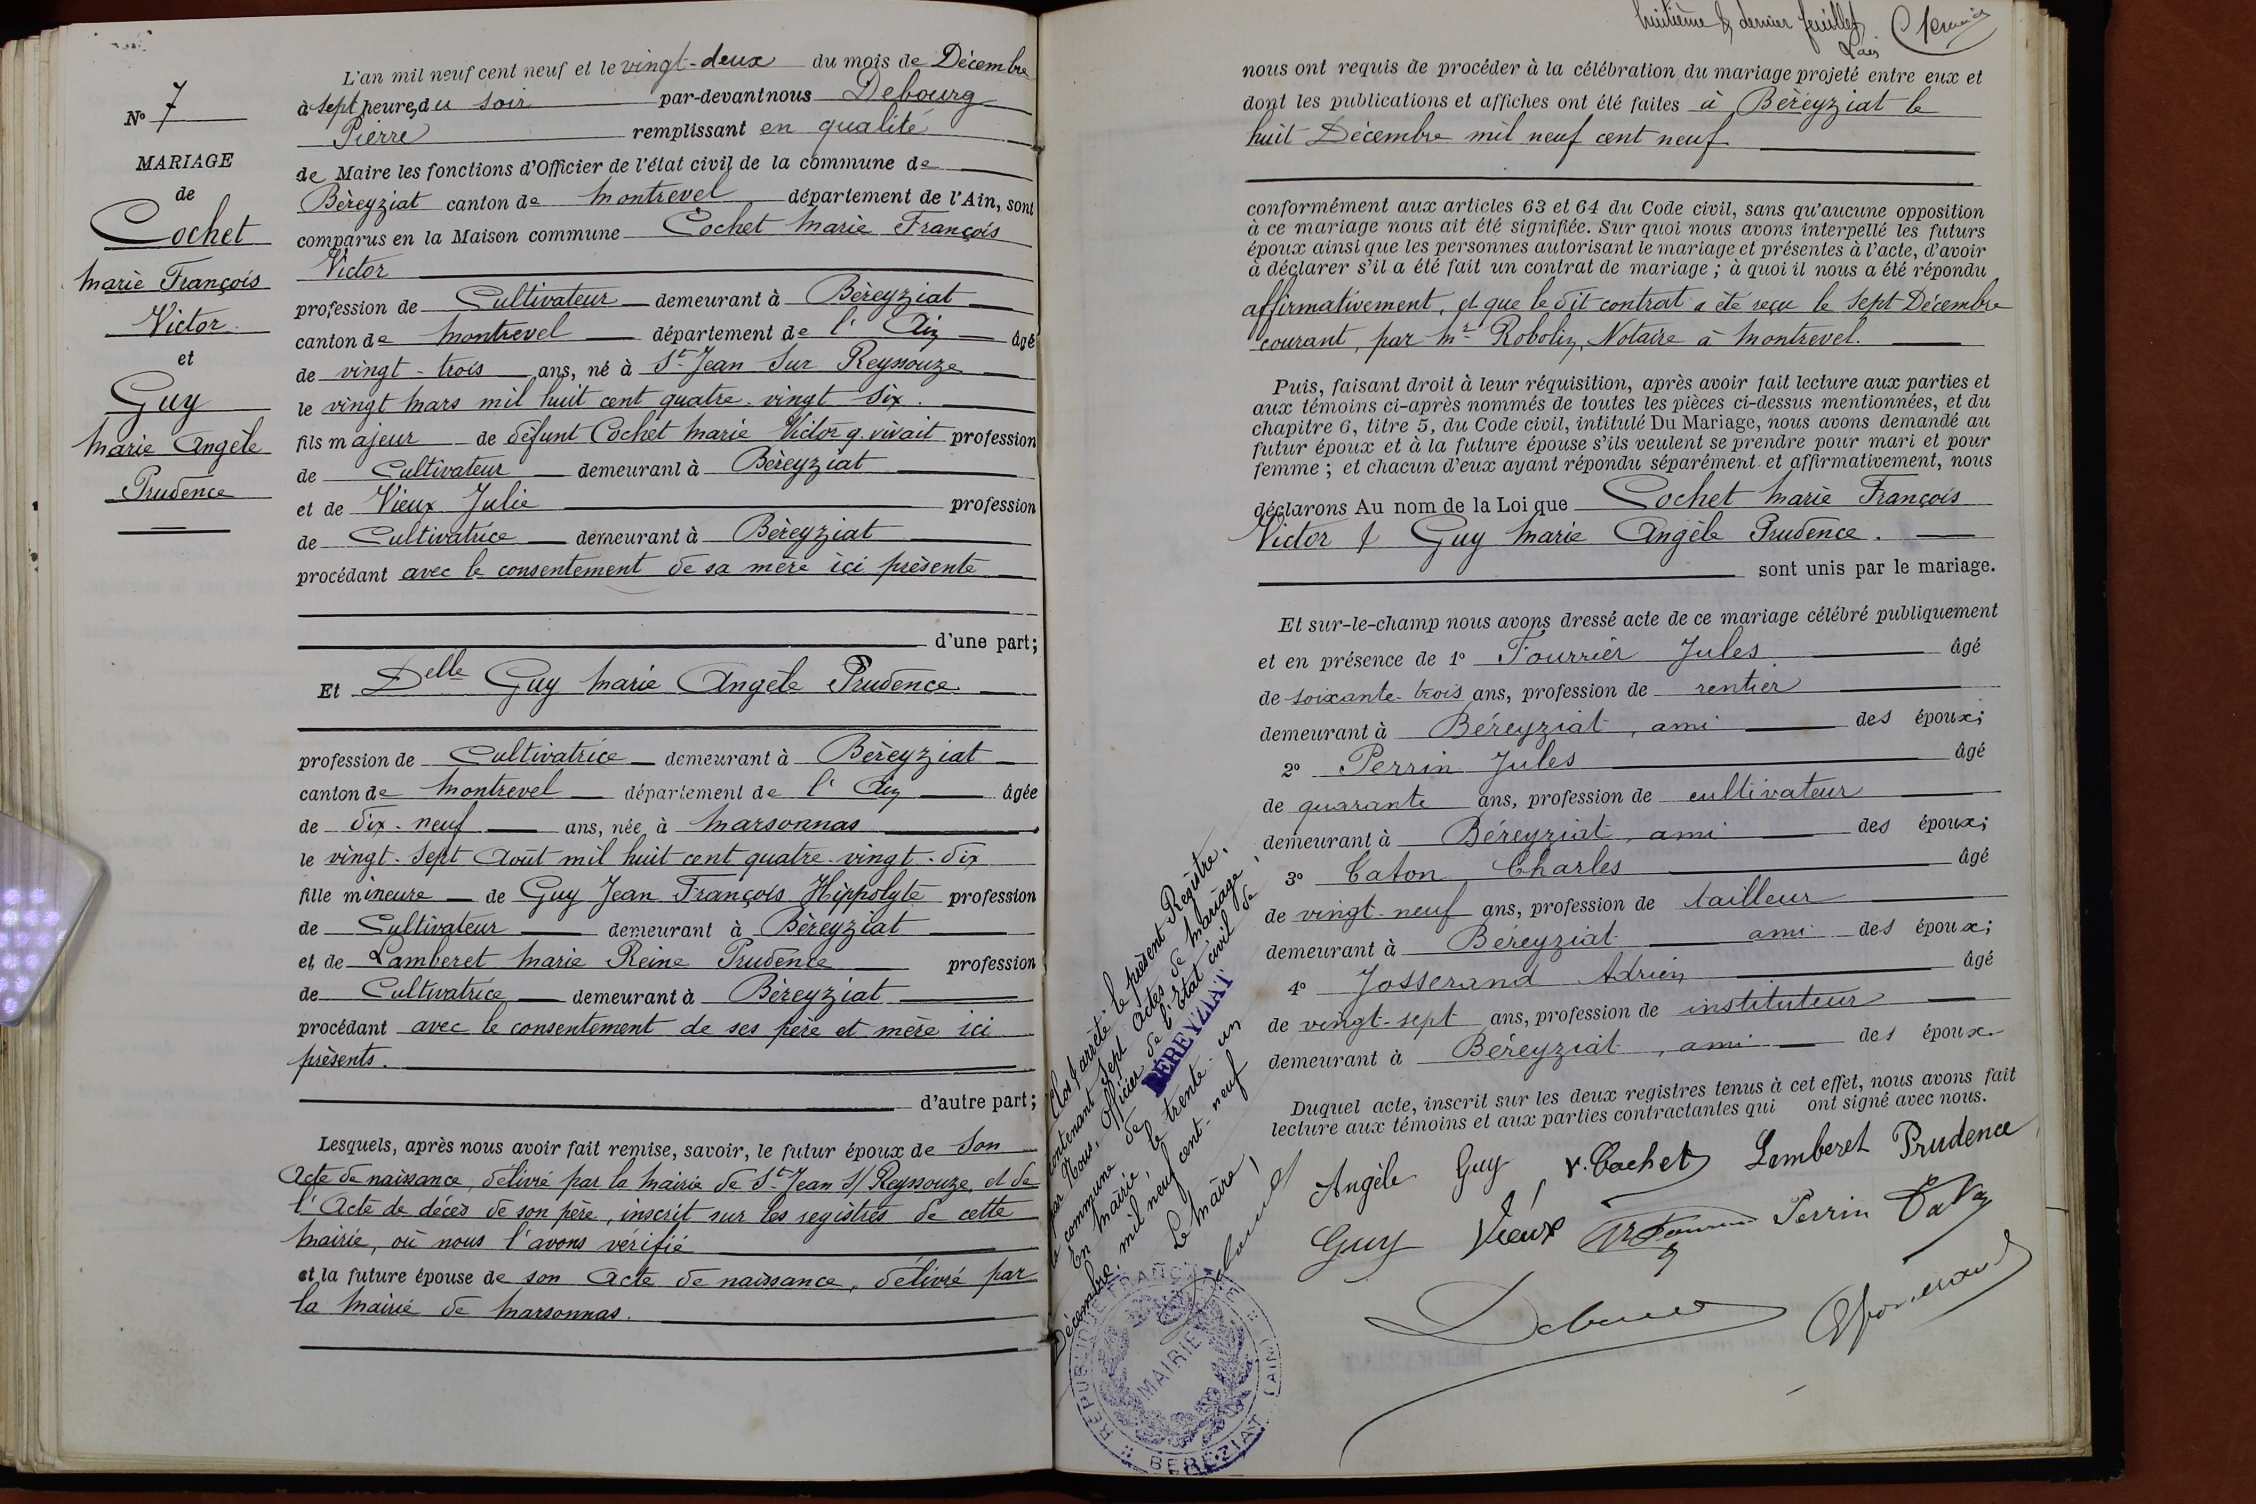 N° 7
MARIAGE
de
Cochet
Marie François
Victor
et
Guy
Marie Angèle
Prudence
L'an mil neuf cent neuf et le vingt-deux du mois de Décembre
à sept heures du soir par-devant nous Debourg
Pierre remplissant en qualité
de Maire les fonctions d'Officier de l'état civil de la commune de
Béreyziat canton de Montrevel département de l'Ain, sont
comparus en la Maison commune Cochet Marie François
Victor
profession de Cultivateur demeurant à Béreyziat
canton de Montrevel département de l'Ain âgé
de vingt-trois ans, né à St Jean Sur Reyssouze
le vingt Mars mil huit cent quatre-vingt six.
fils majeur de défunt Cochet Marie Victor q. vivait profession
de Cultivateur demeurant à Béreyziat
et de Vieux Julie profession
de Cultivatrice demeurant à Béreyziat
procédant avec le consentement de sa mère ici présente
d'une part;
Et Delle Guy Marie Angèle Prudence
profession de Cultivatrice demeurant à Béreyziat
canton de Montrevel département de l'Ain âgée
de dix-neuf ans, née à Marsonnas
le vingt-sept Août mil huit cent quatre-vingt-dix
fille mineure de Guy Jean François Hippolyte profession
de Cultivateur demeurant à Béreyziat
et de Lamberet Marie Reine Prudence profession
de Cultivatrice demeurant à Béreyziat
procédant avec le consentement de ses père et mère ici
présents.
d'autre part;
Lesquels, après nous avoir fait remise, savoir, le futur époux de son
Acte de naissance, délivré par la Mairie de St Jean s/ Reyssouze, et de
l'Acte de décès de son père, inscrit sur les registres de cette
Mairie, où nous l'avons vérifié
et la future épouse de son Acte de naissance, délivré par
la Mairie de Marsonnas.
huitième & dernier feuillet
nous ont requis de procéder à la célébration du mariage projeté entre eux et
dont les publications et affiches ont été faites à Béreyziat le
huit Décembre mil neuf cent neuf
conformément aux articles 63 et 64 du Code civil, sans qu'aucune opposition
à ce mariage nous ait été signifiée. Sur quoi nous avons interpellé les futurs
époux ainsi que les personnes autorisant le mariage et présentes à l'acte, d'avoir
à déclarer s'il a été fait un contrat de mariage ; à quoi il nous a été répondu
affirmativement, et que le dit contrat a été reçu le sept Décembre
courant, par Mr Robolin, Notaire à Montrevel.
Puis, faisant droit à leur réquisition, après avoir fait lecture aux parties et
aux témoins ci-après nommés de toutes les pièces ci-dessus mentionnées, et du
chapitre 6, titre 5, du Code civil, intitulé Du Mariage, nous avons demandé au
futur époux et à la future épouse s'ils veulent se prendre pour mari et pour
femme ; et chacun d'eux ayant répondu séparément et affirmativement, nous
déclarons Au nom de la Loi que Cochet Marie François
Victor & Guy Marie Angèle Prudence.
sont unis par le mariage.
Et sur-le-champ nous avons dressé acte de ce mariage célébré publiquement
et en présence de 1° Fourrier Jules âgé
de soixante-trois ans, profession de rentier
demeurant à Béreyziat, ami des époux;
2° Perrin Jules âgé
de quarante ans, profession de cultivateur
demeurant à Béreyziat, ami des époux;
3° Caton Charles âgé
de vingt-neuf ans, profession de tailleur
demeurant à Béreyziat ami des époux;
4° Josserand Adrien âgé
de vingt-sept ans, profession de instituteur
demeurant à Béreyziat, ami des époux.
Duquel acte, inscrit sur les deux registres tenus à cet effet, nous avons fait
lecture aux témoins et aux parties contractantes qui ont signé avec nous.
Angèle Guy v. Cochet Lamberet Prudence
Guy Vieux Perrin
Clos & arrêté le présent Registre,
contenant sept actes de Mariage,
par Nous, Officier de l'Etat civil de
la commune de BEREYZIAT
En Mairie, le trente-un
Décembre, mil neuf cent-neuf
Le Maire,
RÉPUBLIQUE FRANÇAISE
MAIRIE
BÉRÉZIAT (AIN)